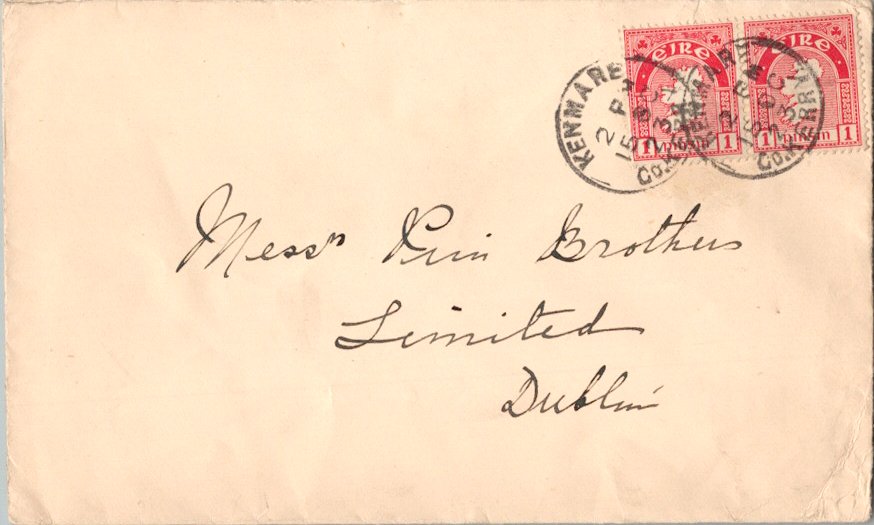 EIRE EIRE
1 pingin 1 1 pingin 1
KENMARE
2 PM
15 OC
Co. KERRY
KENMARE
2 PM
15 OC
Co. KERRY
Messrs Pim Brothers
Limited
Dublin